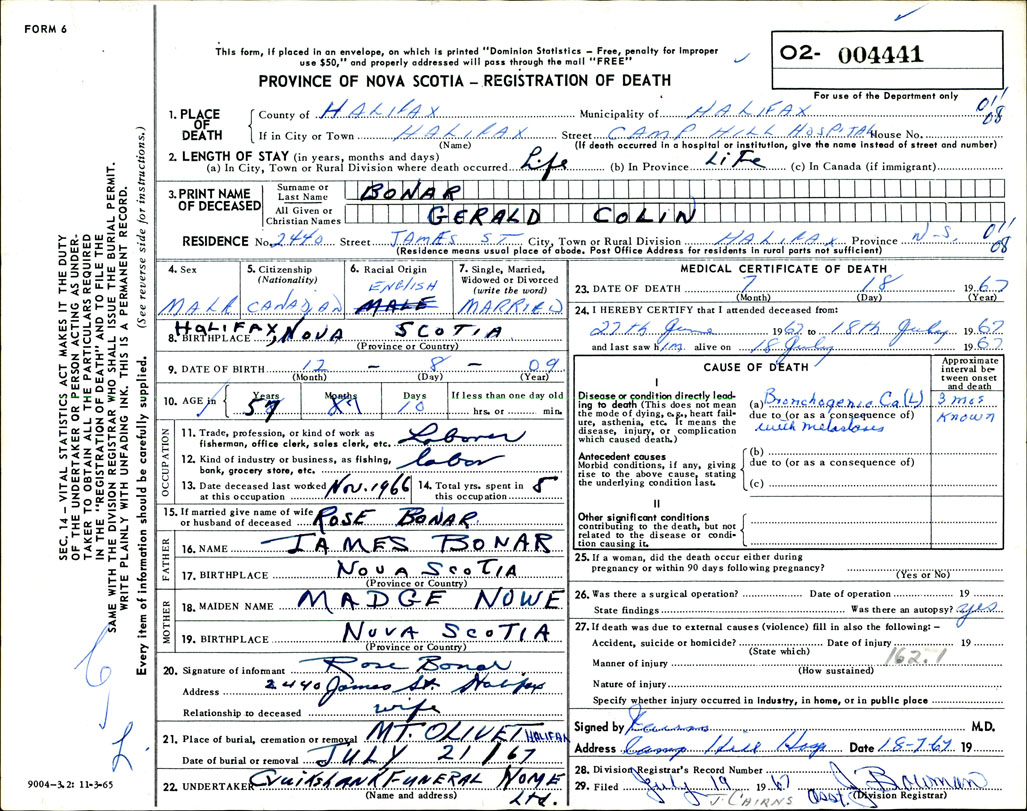 FORM 6
This form, if placed in an envelope, on which is printed "Dominion Statistics – Free, penalty for improper
use $50," and properly addressed will pass through the mail "FREE"
PROVINCE OF NOVA SCOTIA – REGISTRATION OF DEATH
02- 004441
For use of the Department only
1. PLACE OF DEATH
County of HALIFAX Municipality of HALIFAX 01
08
If in City or Town HALIFAX Street CAMP HILL HOSPITAL House No.
(Name) (If death occurred in a hospital or institution, give the name instead of street and number)
2. LENGTH OF STAY (in years, months and days)
(a) In City, Town or Rural Division where death occurred Life (b) In Province LiFe (c) In Canada (if immigrant)
3. PRINT NAME OF DECEASED
Surname or Last Name BONAR
All Given or Christian Names GERALD COLIN
RESIDENCE No. 2440 Street JAMES ST City, Town or Rural Division HALIFAX Province N-S. 01
08
(Residence means usual place of abode. Post Office Address for residents in rural parts not sufficient)
4. Sex MALE
5. Citizenship (Nationality) CANADIAN
6. Racial Origin ENGLISH MALE
7. Single, Married, Widowed or Divorced (write the word) MARRIED
8. BIRTHPLACE HALIFAX, NOVA SCOTIA
(Province or Country)
9. DATE OF BIRTH 12 – 8 – 09
(Month) (Day) (Year)
10. AGE in Years 57 Months Days 10 If less than one day old hrs. or min.
OCCUPATION
11. Trade, profession, or kind of work as fisherman, office clerk, sales clerk, etc. Laborer
12. Kind of industry or business, as fishing, bank, grocery store, etc. labor
13. Date deceased last worked at this occupation Nov. 1966 14. Total yrs. spent in this occupation 8
15. If married give name of wife or husband of deceased ROSE BONAR
FATHER
16. NAME JAMES BONAR
17. BIRTHPLACE NOVA SCOTIA
(Province or Country)
MOTHER
18. MAIDEN NAME MADGE NOWE
19. BIRTHPLACE NOVA SCOTIA
(Province or Country)
20. Signature of informant Rose Bonar
Address 2440 James St. Halifax
Relationship to deceased wife
21. Place of burial, cremation or removal MT. OLIVET HALIFAX
Date of burial or removal JULY 21/67
22. UNDERTAKER Cruikshank FUNERAL HOME Ltd.
(Name and address)
MEDICAL CERTIFICATE OF DEATH
23. DATE OF DEATH 7 18 1967
(Month) (Day) (Year)
24. I HEREBY CERTIFY that I attended deceased from:
27th June 1967 to 18th July 1967
and last saw him alive on 18 July 1967
CAUSE OF DEATH
Approximate interval between onset and death
I
Disease or condition directly leading to death (This does not mean the mode of dying, e.g., heart failure, asthenia, etc. It means the disease, injury, or complication which caused death.)
(a) Bronchogenic Ca (L) 3 mos
due to (or as a consequence of) KNOWN
with metastases
Antecedent causes
Morbid conditions, if any, giving rise to the above cause, stating the underlying condition last.
(b)
due to (or as a consequence of)
(c)
II
Other significant conditions
contributing to the death, but not related to the disease or condition causing it.
25. If a woman, did the death occur either during pregnancy or within 90 days following pregnancy?
(Yes or No)
26. Was there a surgical operation? Date of operation 19
State findings Was there an autopsy? yes
27. If death was due to external causes (violence) fill in also the following: –
Accident, suicide or homicide? Date of injury 19
(State which) 162.1
Manner of injury
(How sustained)
Nature of injury
Specify whether injury occurred in industry, in home, or in public place
Signed by M.D.
Address Camp Hill Hosp Date 18-7-67 19
28. Division Registrar's Record Number
29. Filed July 19 1967 asst J. Bowman
J. CAIRNS (Division Registrar)
SEC. 14 – VITAL STATISTICS ACT MAKES IT THE DUTY
OF THE UNDERTAKER OR PERSON ACTING AS UNDERTAKER
TO OBTAIN ALL THE PARTICULARS REQUIRED
IN THE "REGISTRATION OF DEATH" AND TO FILE THE
SAME WITH THE DIVISION REGISTRAR WHO SHALL ISSUE THE BURIAL PERMIT.
WRITE PLAINLY WITH UNFADING INK. THIS IS A PERMANENT RECORD.
Every item of information should be carefully supplied. (See reverse side for instructions.)
9004-3.2: 11-3-65